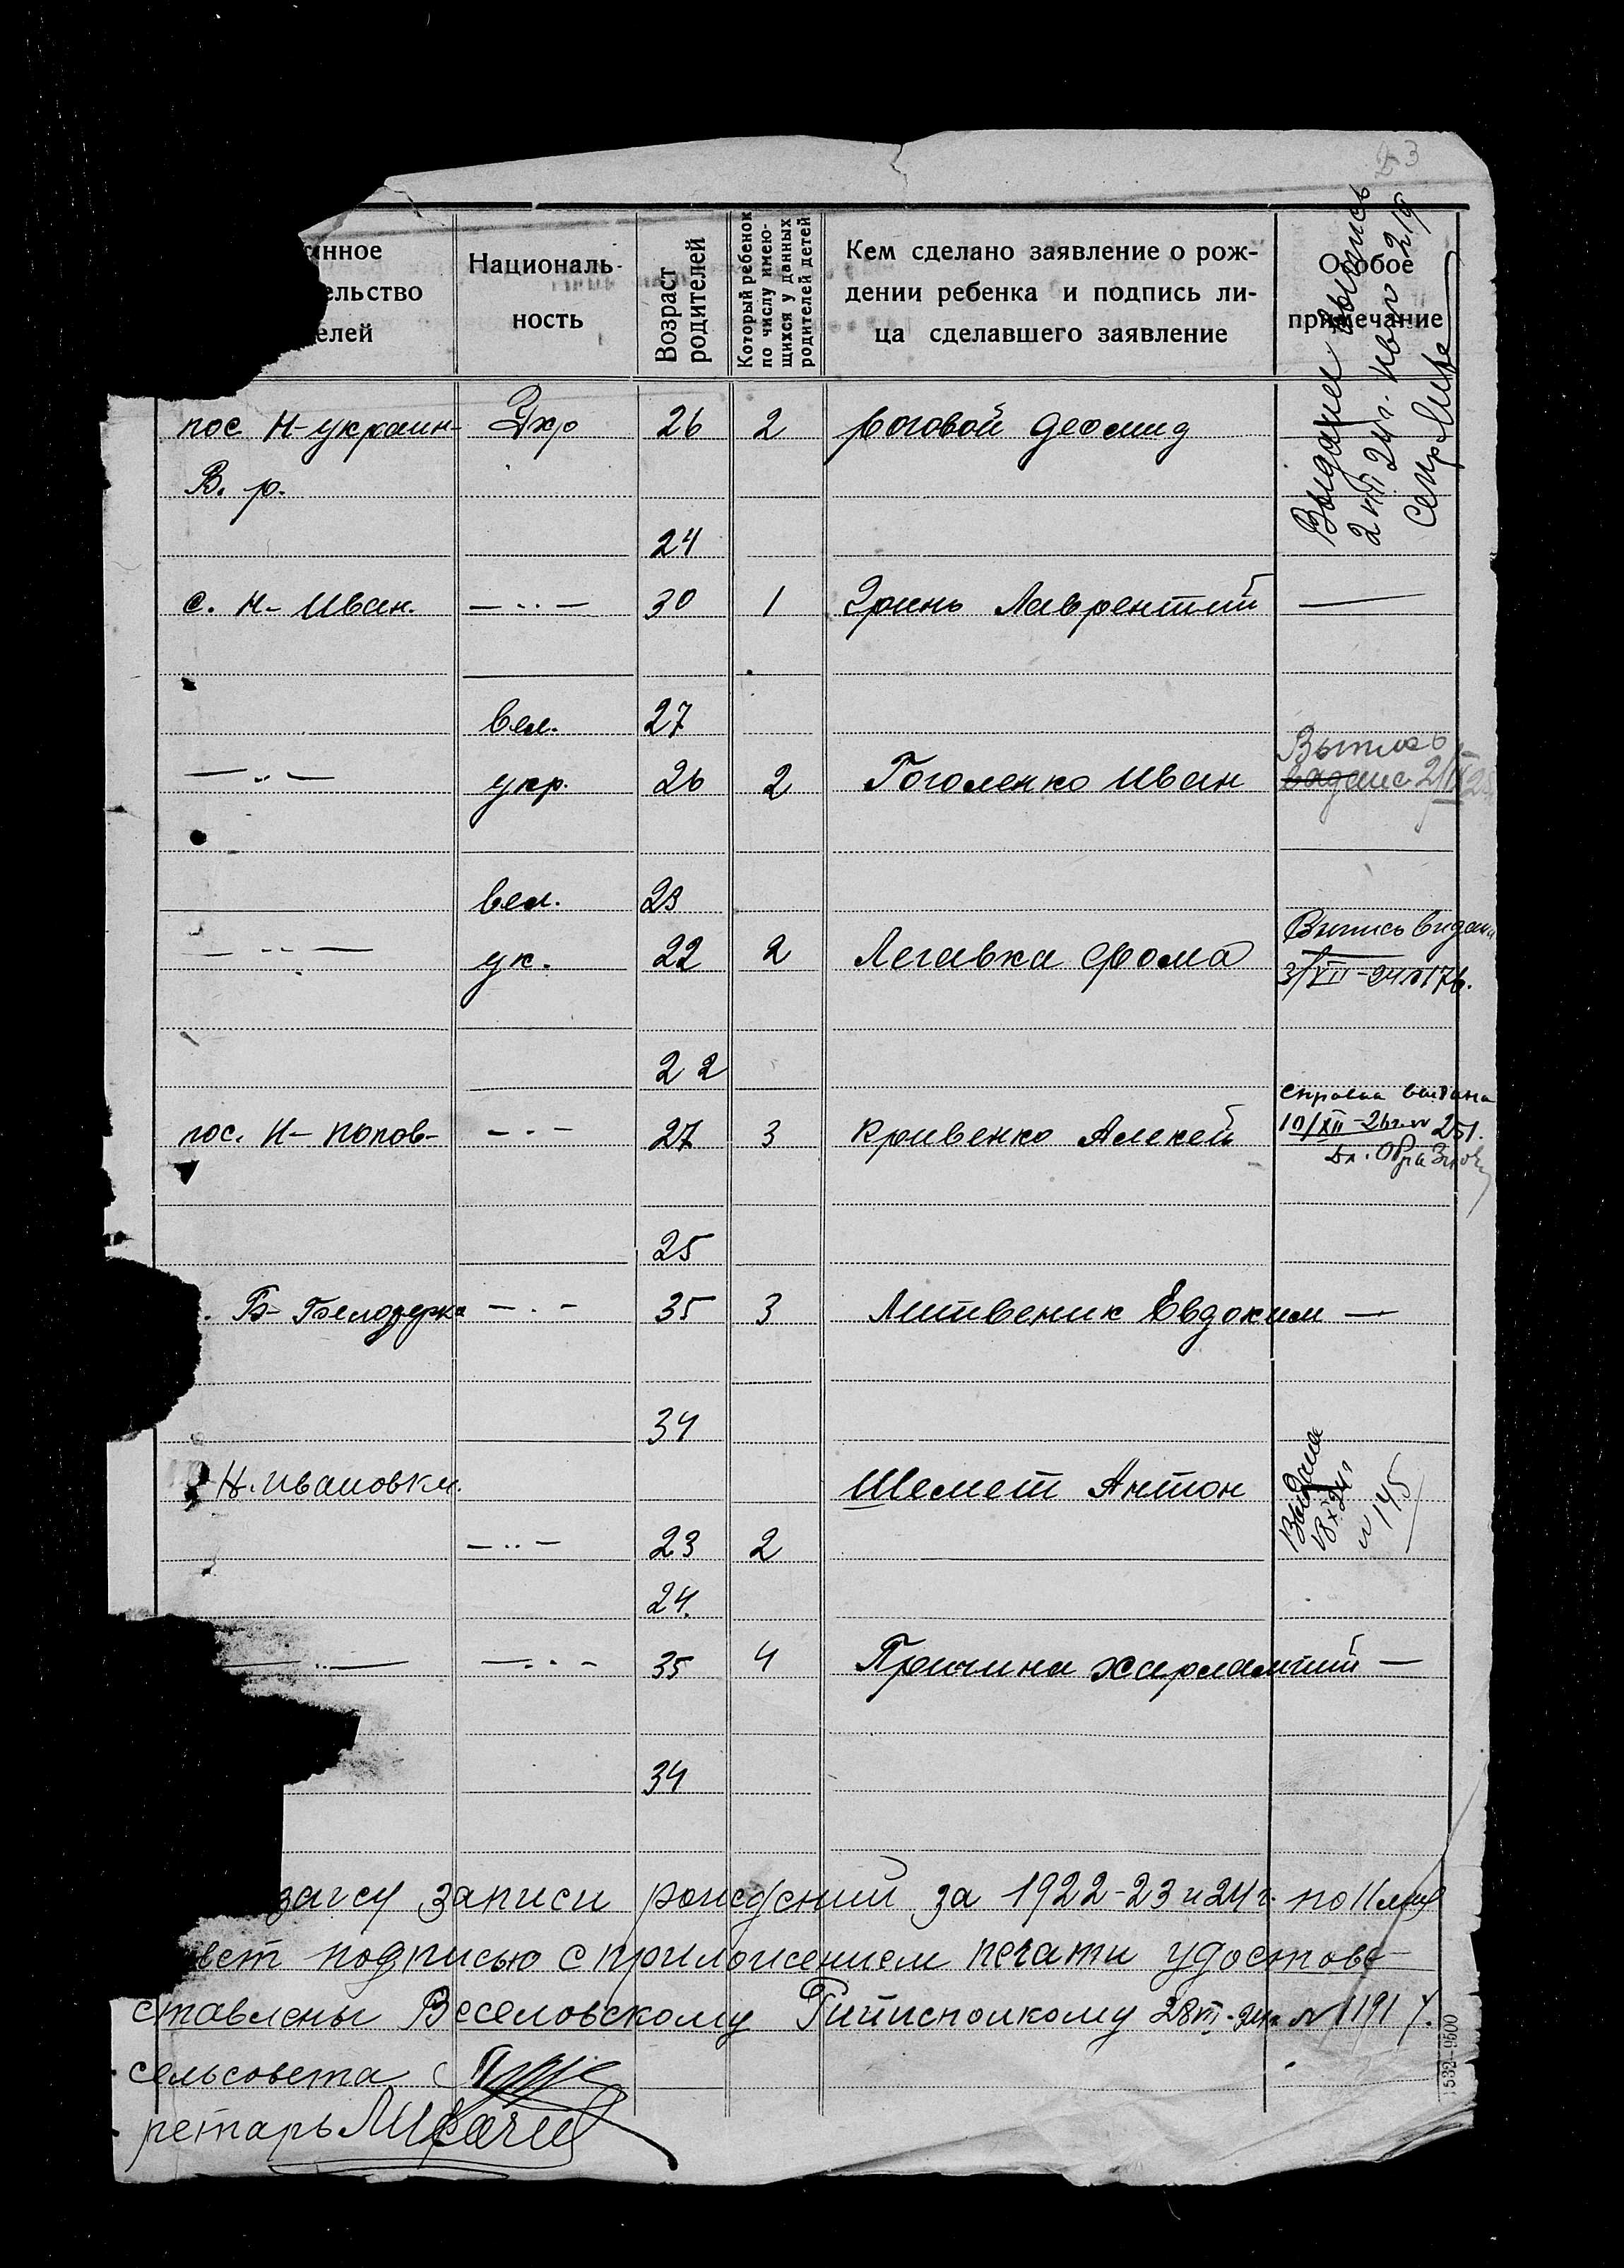 3
нное
ельство
елей
Националь-
ность
Возраст
родителей
Который ребенок
по числу имею-
щихся у данных
родителей детей
Кем сделано заявление о рож-
дении ребенка и подпись ли-
ца сделавшего заявление
Особое
примечание
пос Н-украин- Укр 26 2 Роговой Деомид
Выдана выпись
2 24 г. 219
В. р.
24
с. Н- Иван. — ·· — 30 1 Гринь Лаврентий —
вел. 27
— ·· — укр. 26 2 Гоголенко Иван
Выпись
вел. 23
— ·· — ук. 22 2 Легавка Фома
Выпись видана
3/XII-24 № 176.
22
пос. Н- Попов- — · — 27 3 Кривенко Алексей
Справка выдана
10/XII-26 г. № 251.
25
. Б- Белозерка — · — 35 3 Литвеник Евдоким —
34
Н. Ивановки. Шемет Антон
Выдана
18 X 24 г
№ 145
— ·· — 23 2
24.
— ·· — — ·· — 35 4 Причина Харлампий —
34
загсу записи рождений за 1922-23 и 24 г. по
вет подписью с приложением печати удостове-
ставлены Веселовскому Риписполкому 28 № 1191
сельсовета
ретарь
532—9500